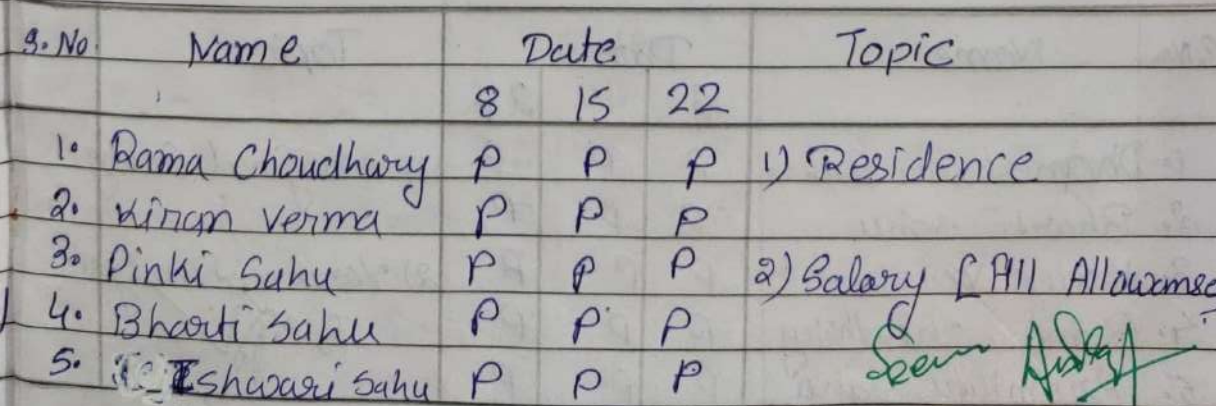 S.No. Name Date Topic
8 15 22
1. Rama Choudhary P P P 1) Residence
2. Kiran Verma P P P
3. Pinki Sahu P P P 2) Salary [All Allowamse
4. Bharti Sahu P P P
5. Ishwari Sahu P P P